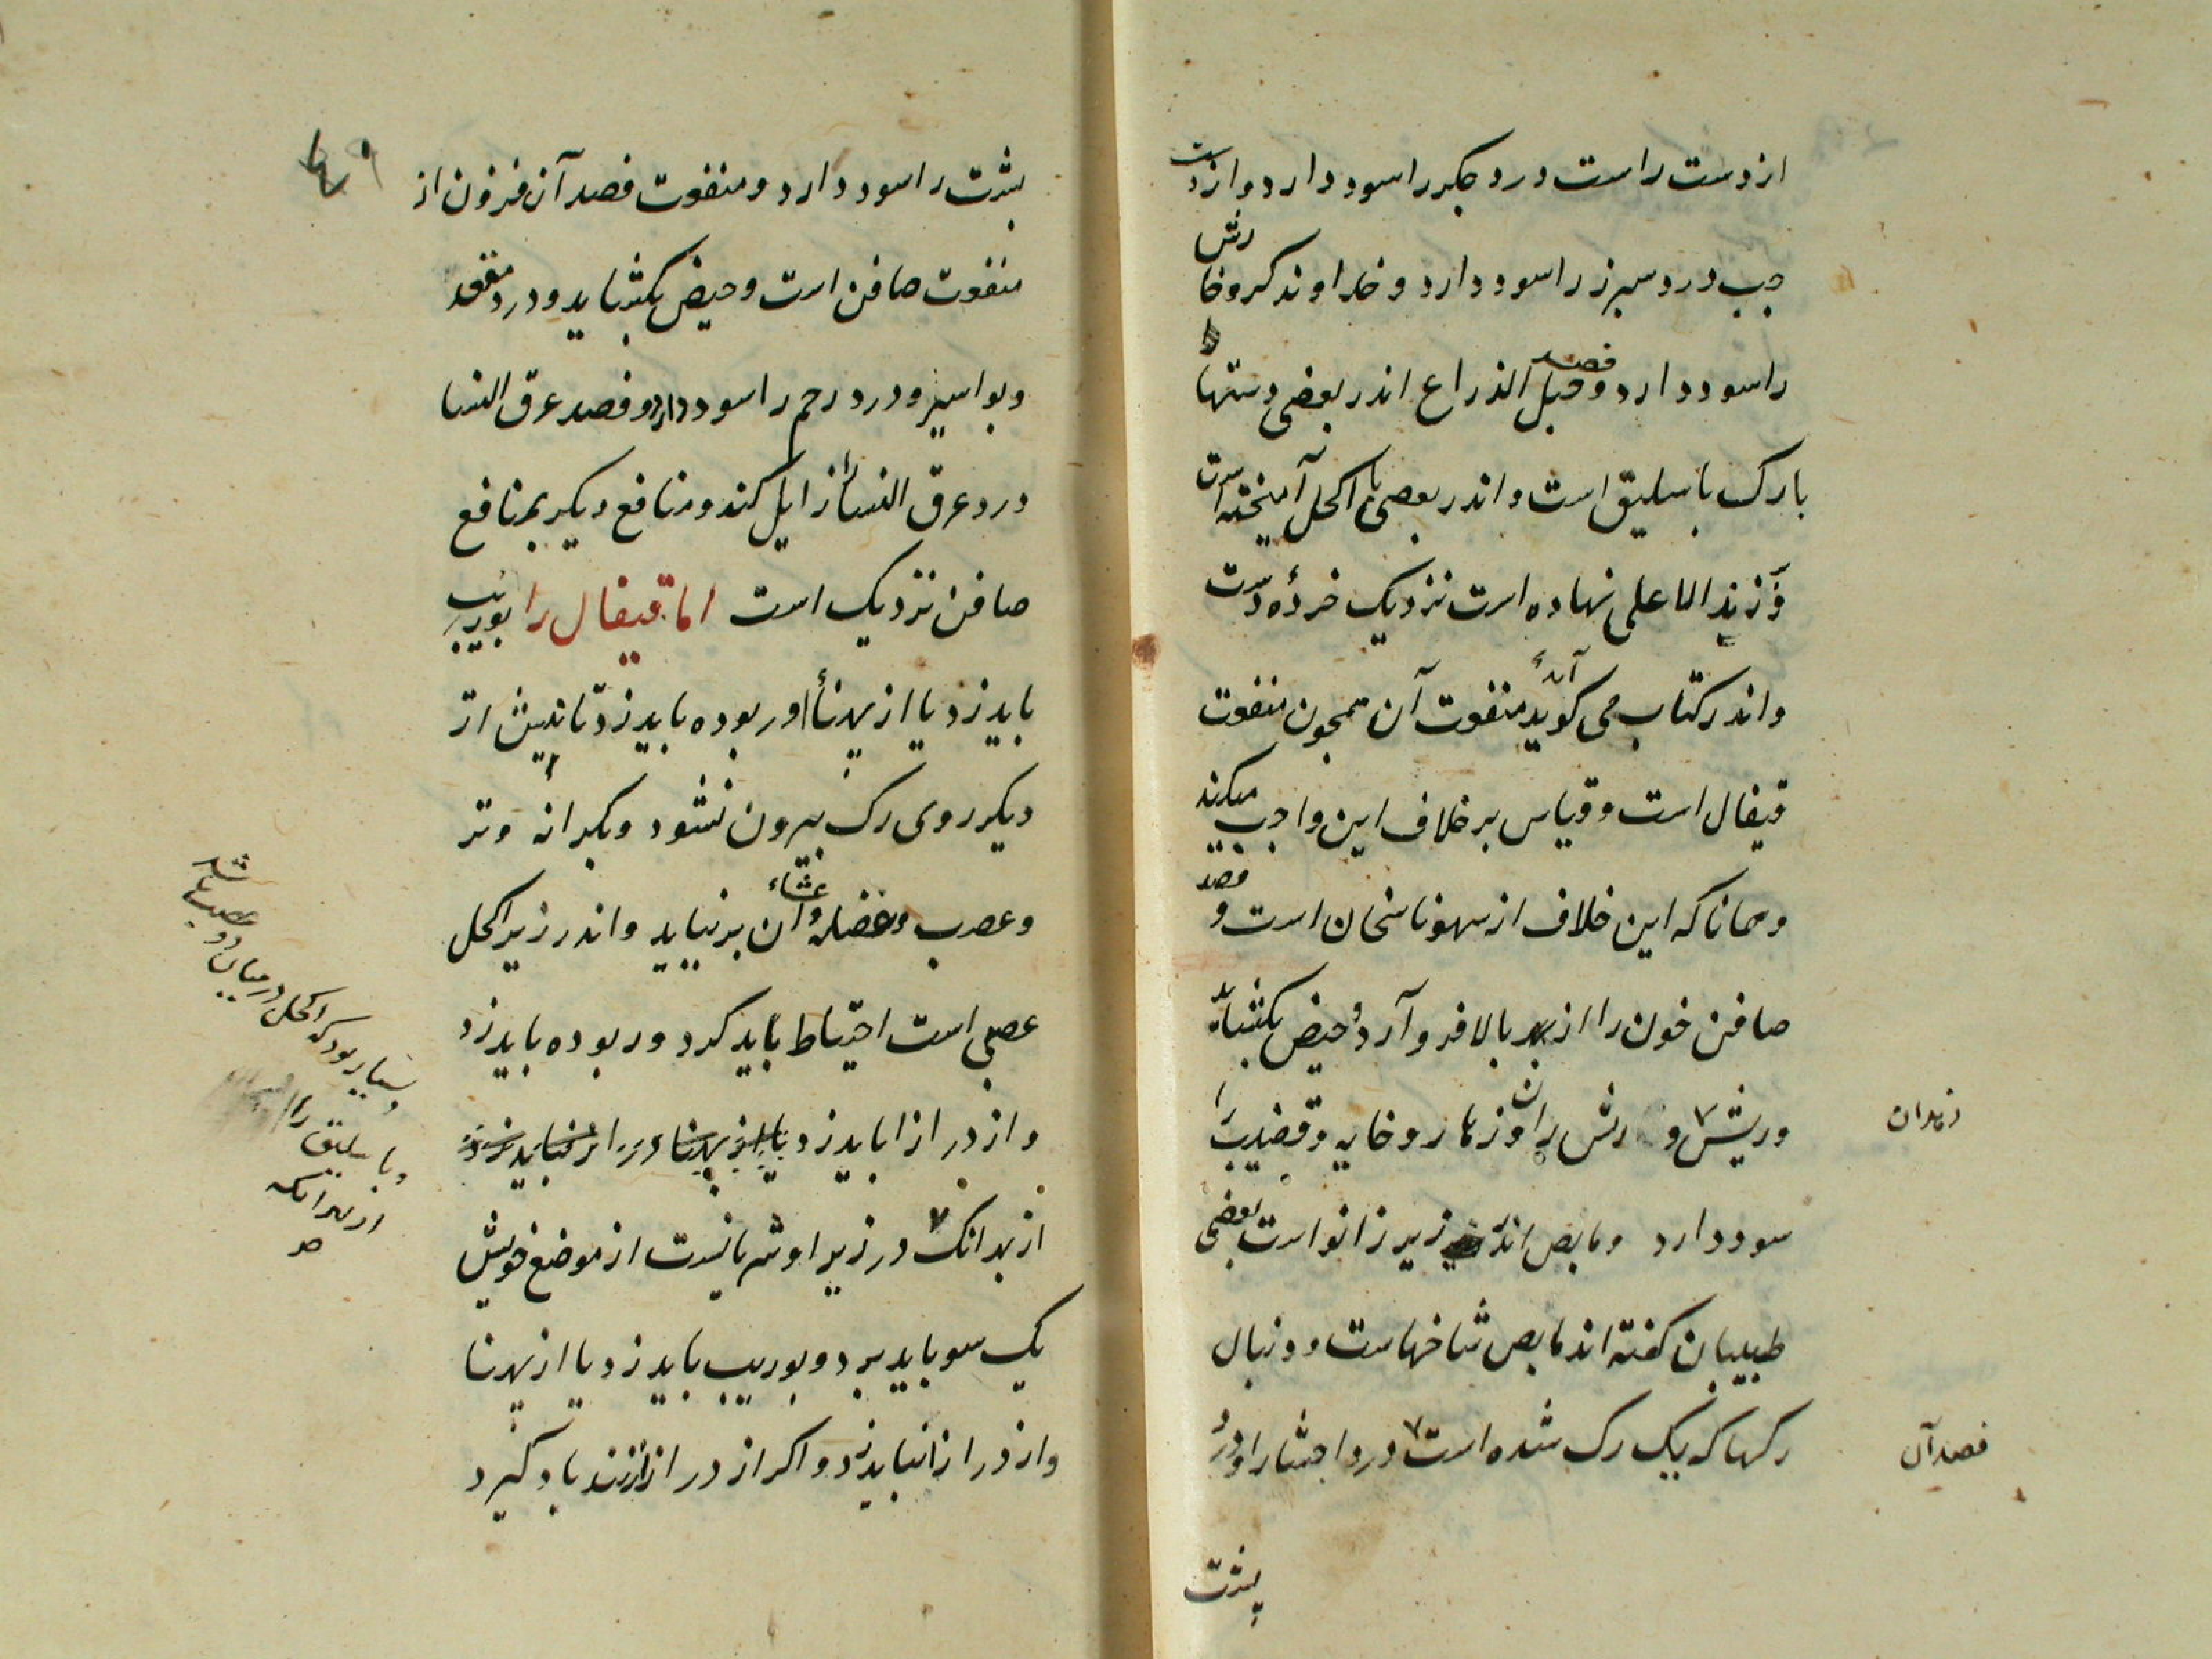 از دست راست درد جکر را سود دارد و از دست
جب درد سبرز را سود دارد و خداوند کر و خارش
را سود دارد و فصد حبل الذراع اندر بعضی دستها
با رک باسلیق است و اندر بعضی با اکحل آمیخته است
و زند الاعلی نهاده است نزدیک خردهٔ دست
و اندر کتاب می کوید منفعت آن همجون منفعت
قیفال است و قیاس بر خلاف این واجب میکند
و همانا که این خلاف از سهو ناسخان است و فصد
صافن خون را از بالا فرو آرد و حیض بکشاید
و ریش و رش ران و زهار و خایه و قضیب را
زهدان
سود دارد و مابض اندر زیر زانو است بعضی
طبیبان کفته اند مابض شاخهاست و دنبال
رکها که یک رک شده است درد احشا را و درد
فصد آن
پشت
پشت را سود دارد و منفعت فصد آن فزون از
منفعت صافن است و حیض بکشاید و درد مقعد
و بواسیر و درد رحم را سود دارد و فصد عرق النسا
درد عرق النسا را زایل کند و منافع دیکر بمنافع
صافن نزدیک است اما قیفال را بوریب
باید زد یا از پهنا و ربوده باید زد تا نیش از
دیکر روی رک بیرون نشود و بکرانه وتر
و عصب و عضله و غشاء آن برنیاید و اندر زیر اکحل
عصبی است احتیاط باید کرد و ربوده باید زد
و از درازا باید زد
از بهر انک در زیر او شریانیست از موضع خویش
یک سو باید برد و بوریب باید زد یا از پهنا
و از درازا نباید زد و اکر از درازا زنند باد کیرد
و بسیار بود که اکحل در میان دو عصب باشد
و باسلیق را
از بهر انکه